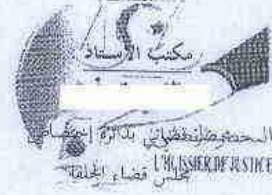 مكتب الأستاذ
المحضر القضائي بدائرة إختصاص
L'HUISSIER DE JUSTICE
مجلس قضاء الجلفة